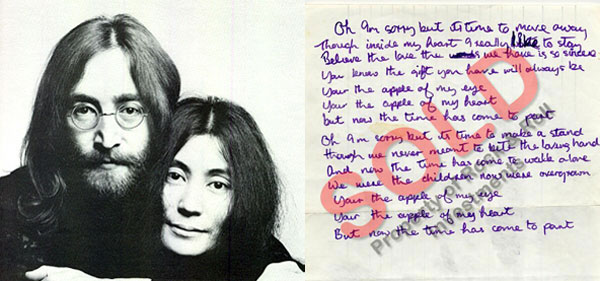 Oh Im sorry but its time to move away
Though inside my heart I really like to stay
Believe the love the we have is so sincere
You know the gift you have will always be
Your the apple of my eye
Your the apple of my heart
but now the time has come to part
Oh Im sorry but its time to make a stand
though we never meant to bite the loving hand
And now the time has come to walk alone
We were the children now were overgrown
Your the apple of my eye
Your the apple of my heart
But now the time has come to part
SOLD